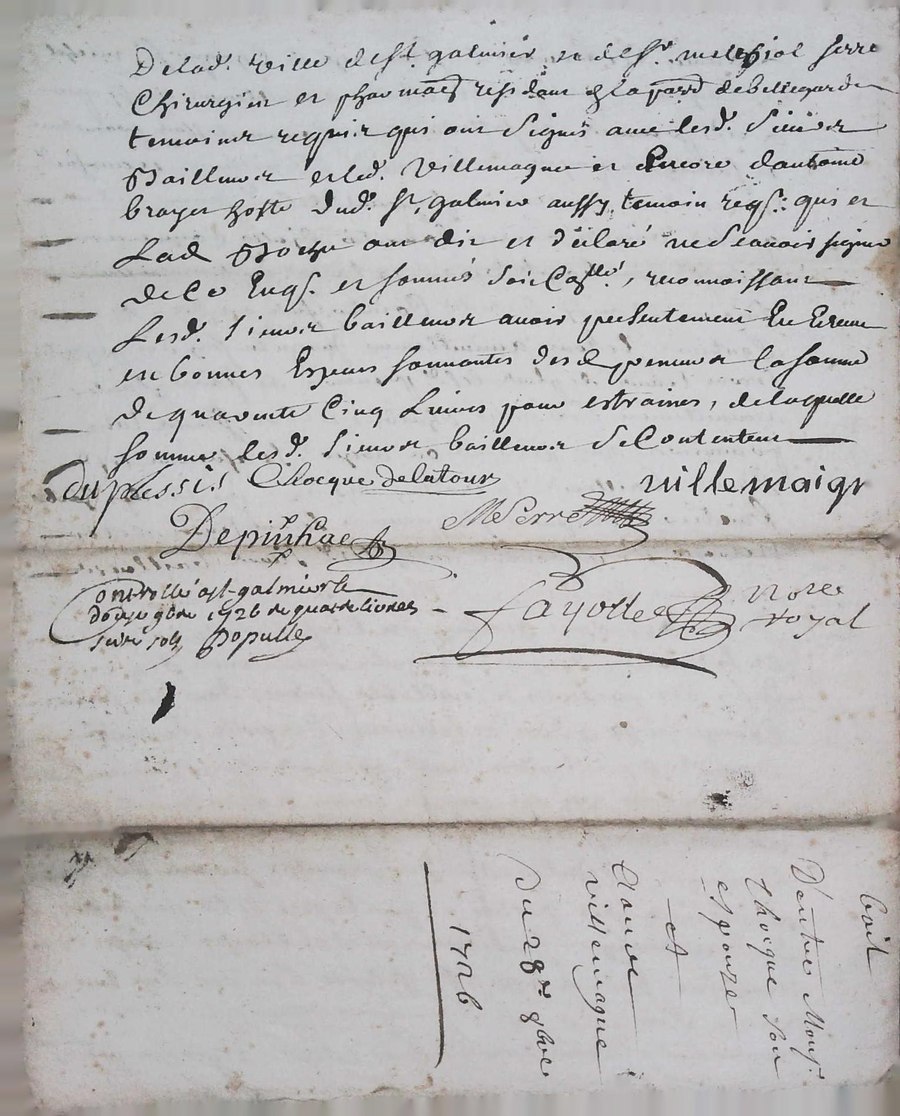 De lad. ville de st. galmier et de sr. melchiol serre
Chirurgien et pharmac residant a la par. de bellegarde
temoins requis qui ont signés avec lesd. Sieur
Bailleur et led. Villemagne et Encore dantoine
brayer hoste dud. st. galmier aussy temoin reqs. qui et
Lad ont dit et déclaré ne scavoir signer
de Ce Enqs. et sommés reconnoissant
Lesd. Sieur bailleur avoir presentement En Receu
en bonnes Especes sonnantes desd preneur la somme
de quarente Cinq Livres pour estraines, de laquelle
somme lesd. Sieur bailleur Se Contentent
duplessis Chocque Delatour villemaigr
Depinhac MSerre
Controllé a st-galmier le
douze 9bre 1726 de quatre livres
seize sols Populle
Fayolle Nore
royal
bail
Dentre Monsr.
Chocque Son
Espouze
et
Claude
villemagne
Du 28me 8bre
1726